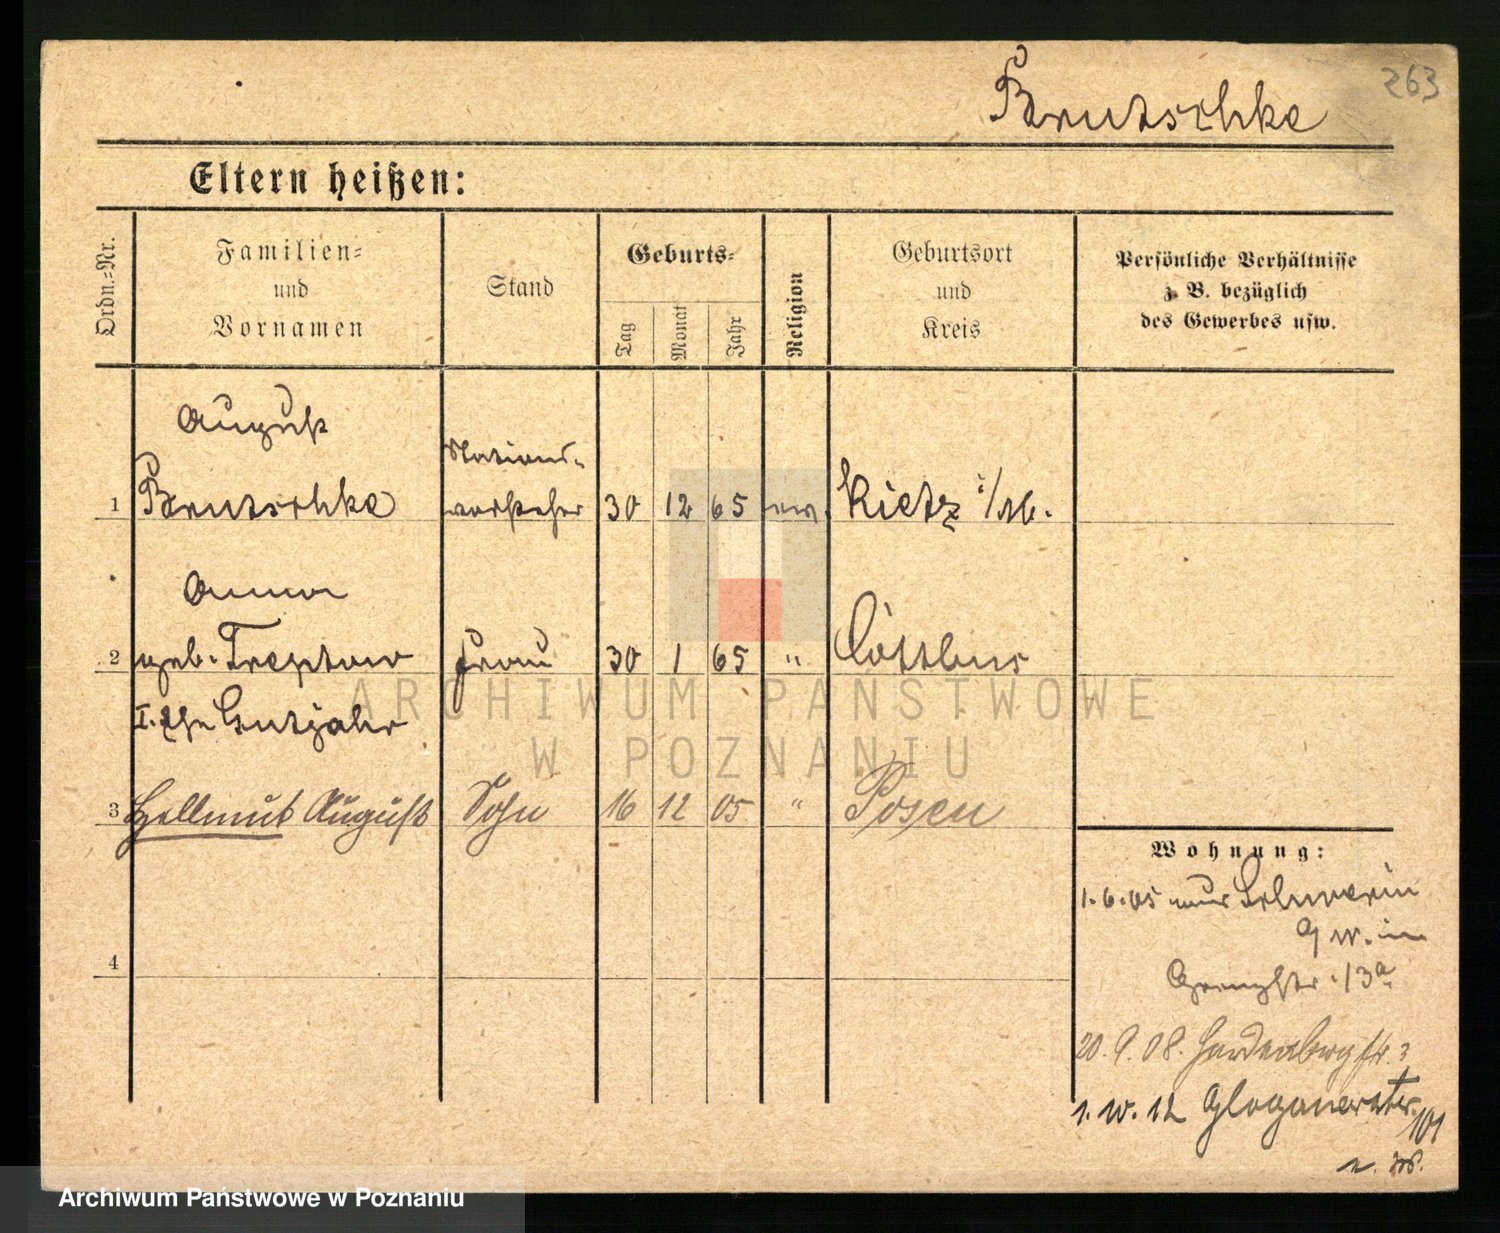 263
Brutschke
Eltern heißen:
Ordn.-Nr.
Familien-
und
Vornamen
Stand
Geburts-
Tag
Monat
Jahr
Religion
Geburtsort
und
Kreis
Persönliche Verhältnisse
z. B. bezüglich
des Gewerbes usw.
August
Stations-
1 Brutschke vorsteher 30 12 65 ev. Kietz
Anna
2 geb. Treptow Frau 30 1 65 " Cottbus
I. Ehe Gutjahr
3 Hellmut August Sohn 16 12 05 " Posen
4
Wohnung:
1.6.05 aus Schwerin
Grenzstr. 13a
20.9.08. Hardenbergstr. 3
1. 10. 12 Glogauerstr.
101
ARCHIWUM PAŃSTWOWE
W POZNANIU
Archiwum Państwowe w Poznaniu